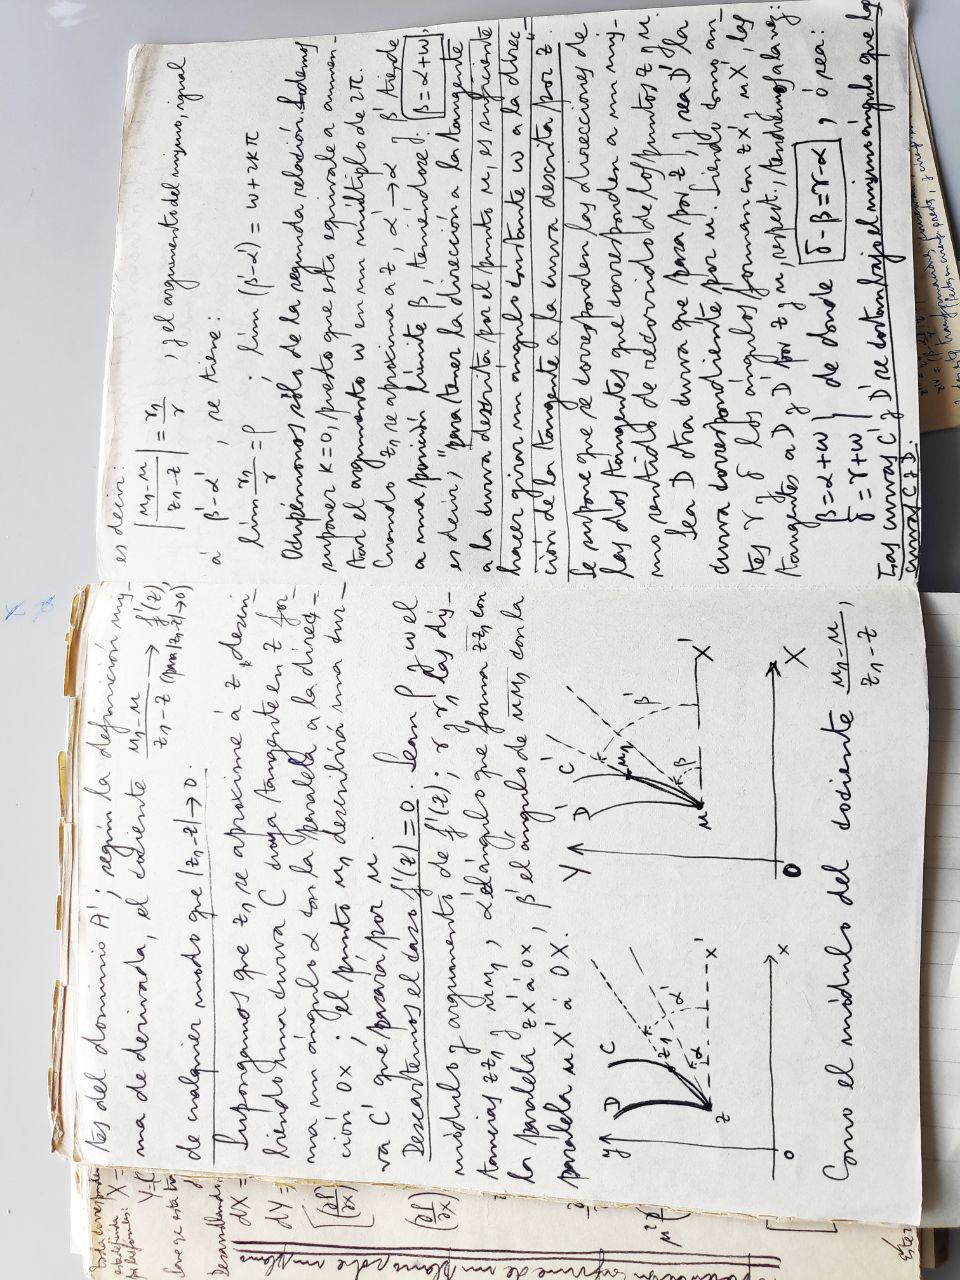 tes del dominio A', según la definición mis-
ma de derivada, el cociente u₁-u / z₁-z → f'(z),
(para |z₁-z|→0)
de cualquier modo que |z₁-z|→0.
Supongamos que z₁ se aproxime á z, descri-
biendo una curva C cuya tangente en z for-
ma un ángulo α con la paralela a la direc=
ción OX; el punto u₁ describirá una cur-
va C' que pasará por u.
Descartamos el caso f'(z)=0. Sean ρ y w el
módulo y argumento de f'(z); r y r₁ las dis-
tancias zz₁ y uu₁, α' el ángulo que forma zz₁ con
la paralela zX' á OX, β' el ángulo de uu₁ con la
paralela uX' á OX.
y D C z₁ α' α z X' O X
Y D' C' u₁ β' β u X' O X
Como el módulo del cociente u₁-u / z₁-z,
es decir:
|u₁-u / z₁-z| = r₁/r, y el argumento del mismo, igual
á β'-α', se tiene:
lím r₁/r = ρ; lím (β'-α') = w+2kπ
Ocupémonos sólo de la segunda relación. Podemos
suponer k=0, puesto que esto equivale a aumen-
tar el argumento w en un múltiplo de 2π.
Cuando z₁ se aproxima a z, α'→α y β' tiende
a una posición límite β, teniéndose: β=α+w,
es decir, "para tener la dirección a la tangente
a la curva descrita por el punto u, es suficiente
hacer girar un ángulo constante w a la direc
ción de la tangente a la curva descrita por z."
Se supone que se corresponden las direcciones de
las dos tangentes que corresponden a un mis-
mo sentido de recorrido de los puntos z y u.
Sea D otra curva que pasa por z, y sea D' la
curva correspondiente por u. Siendo como an
tes γ y δ los ángulos que forman con zX' y uX', las
tangentes a D y D' por z y u, respect., tendremos a la vez:
β=α+w
δ=γ+w } de donde δ-β=γ-α, ó sea:
Las curvas C' y D' se cortan bajo el mismo ángulo que las
curvas C y D.